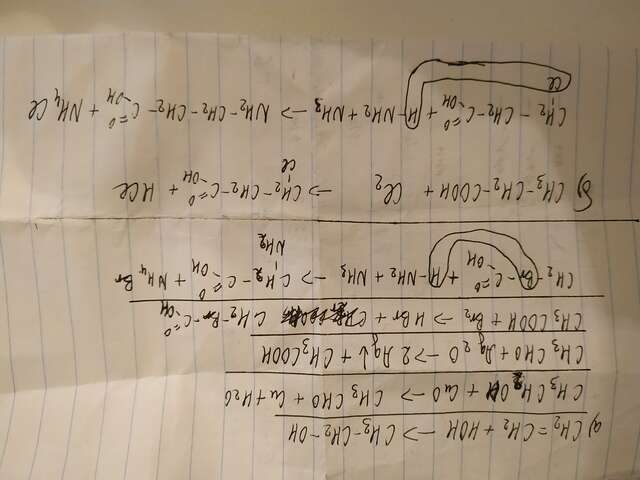 a) CH2=CH2 + HOH -> CH3-CH2-OH
CH3CH2OH + CuO -> CH3CHO + Cu + H2O
CH3CHO + Ag2O -> 2Ag↓ + CH3COOH
CH3COOH + Br2 -> HBr + CH2-Br-C=O
-OH
CH2-Br-C=O + H-NH2 + NH3 -> CH2-C=O + NH4Br
-OH NH2 -OH
б) CH3-CH2-COOH + Cl2 -> CH2-CH2-C=O + HCl
Cl -OH
CH2-CH2-C=O + H-NH2 + NH3 -> NH2-CH2-CH2-C=O + NH4Cl
Cl -OH -OH